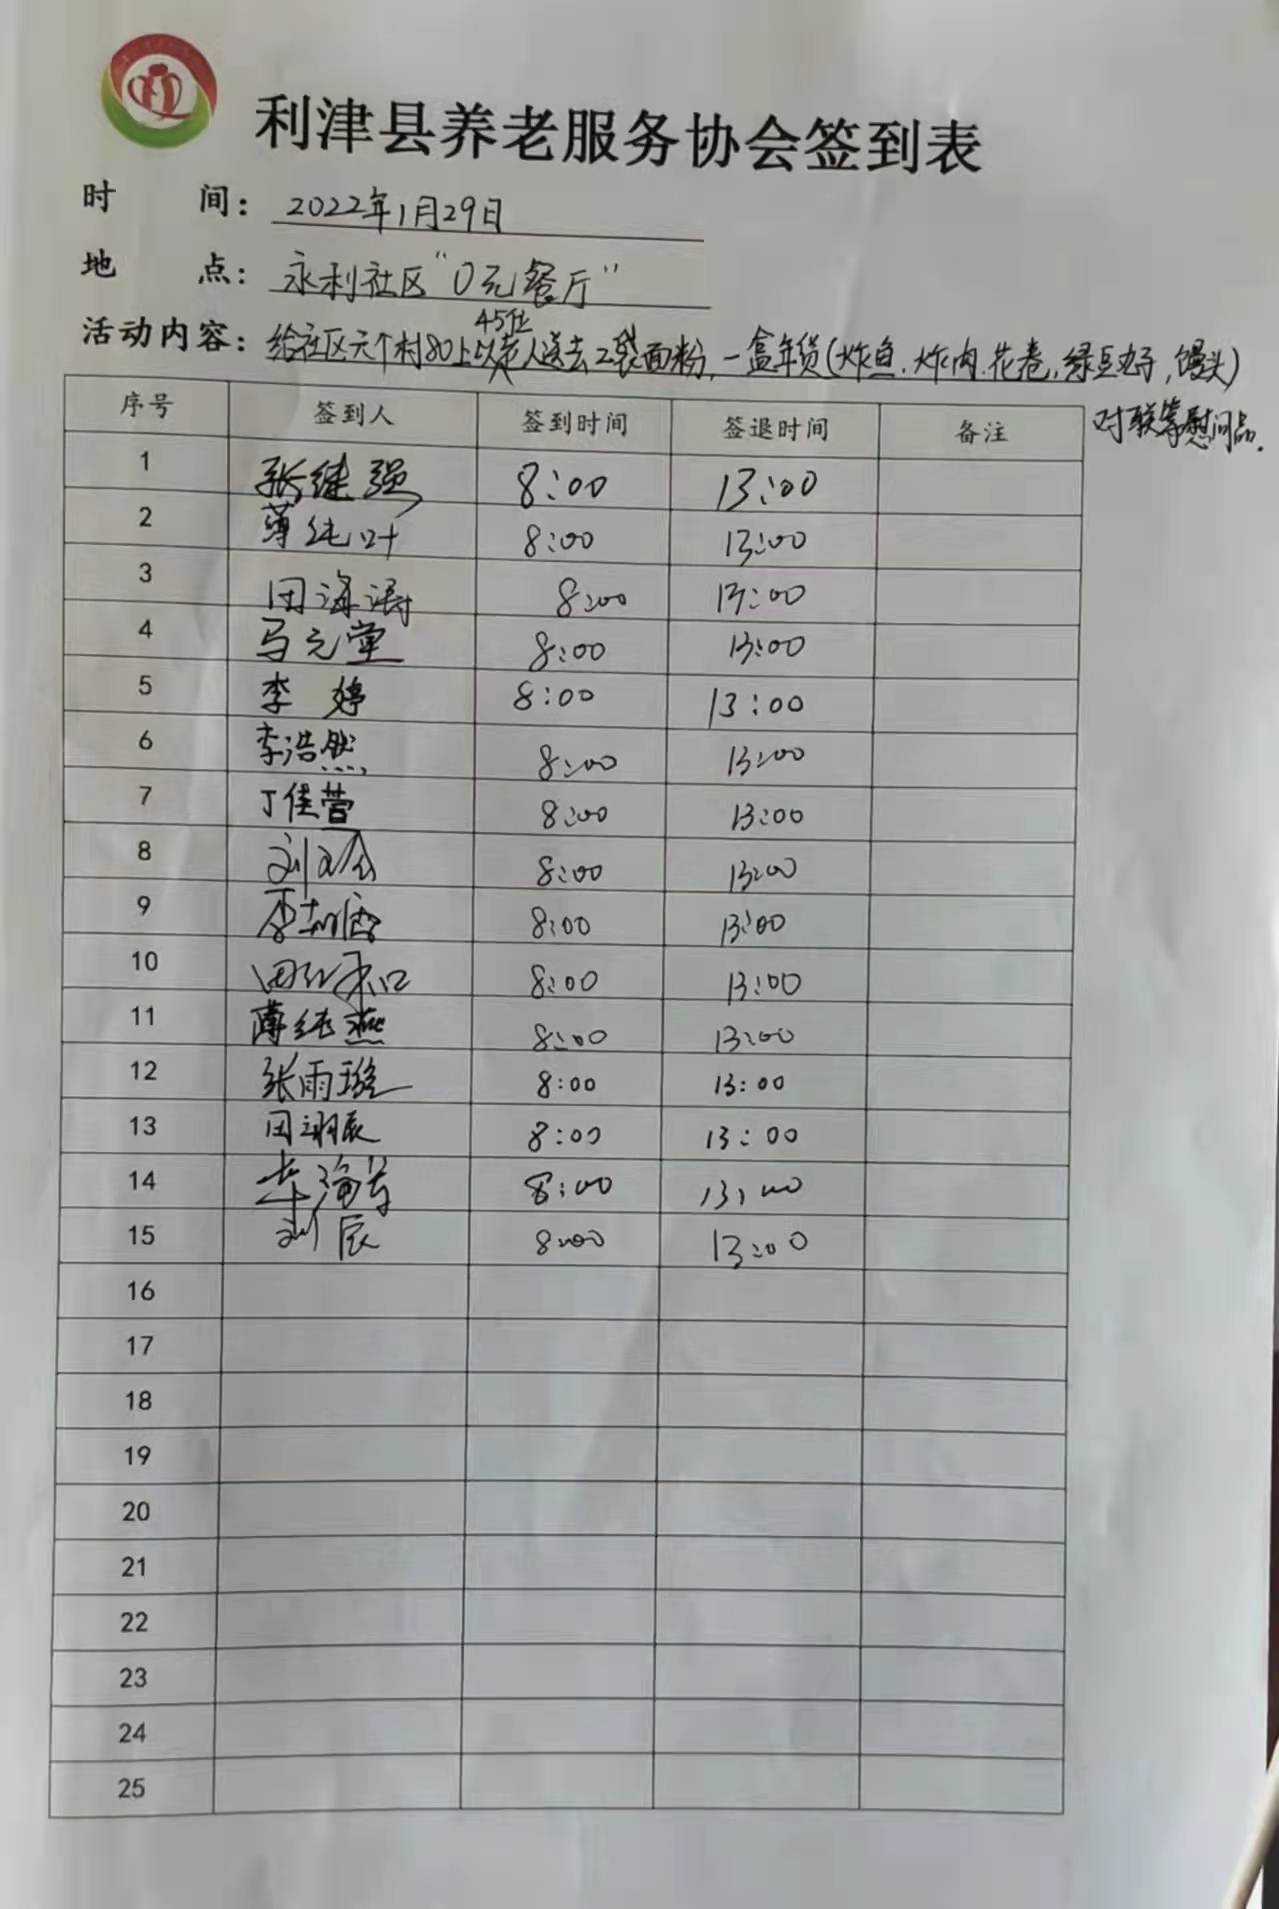 利津县养老服务协会签到表
时 间：2022年1月29日
地 点：永利社区“0元餐厅”
45位
活动内容：给社区六个村80上以老人送去2袋面粉，一盒年货(炸鱼、炸肉、花卷，绿豆丸子，馒头)
对联等慰问品.
序号 签到人 签到时间 签退时间 备注
1 张继强 8:00 13:00
2 薄纯叶 8:00 13:00
3 田海涛 8:00 13:00
4 马元堂 8:00 13:00
5 李婷 8:00 13:00
6 李浩然 8:00 13:00
7 丁佳营 8:00 13:00
8 刘 8:00 13:00
9 8:00 13:00
10 田 8:00 13:00
11 薄纯燕 8:00 13:00
12 张雨璇 8:00 13:00
13 田翊辰 8:00 13:00
14 李海芳 8:00 13:00
15 刘辰 8:00 13:00
16
17
18
19
20
21
22
23
24
25